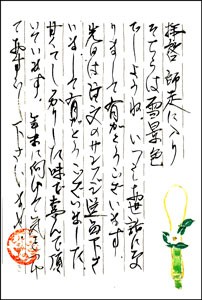 拝啓 師走に入り
そちらは雪景色
でしょうね。いつもお世話にな
りまして有がとうございます。
先日は注文のサンフジ送って下さ
いまして有がとうございました。
甘くてしっかりした味で喜んで頂
いています。年末に向ひ
下さいませ